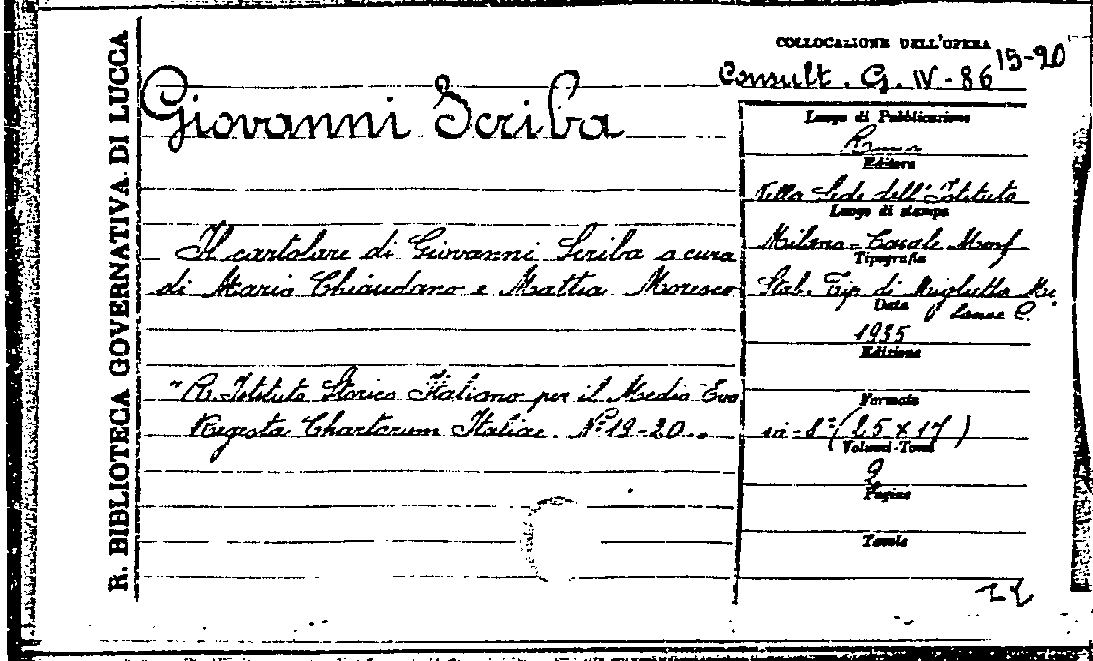 R. BIBLIOTECA GOVERNATIVA DI LUCCA
COLLOCAZIONE DELL'OPERA
Consult. G. IV-86 15-20
Giovanni Scriba
Il cartolare di Giovanni Scriba a cura
di Mario Chiaudano e Mattia Moresco
"R. Istituto Storico Italiano per il Medio Evo
Regesta Chartarum Italiae. N° 19-20"
Luogo di Pubblicazione
Roma
Editore
Nella Sede dell'Istituto
Luogo di stampa
Milano-Casale Monf
Tipografia
Stab. Tip. di Miglietta Mi
Data
lano C.
1935
Edizione
Formato
in-8° (25 x 17)
Volumi-Tomi
2
Pagine
Tavole